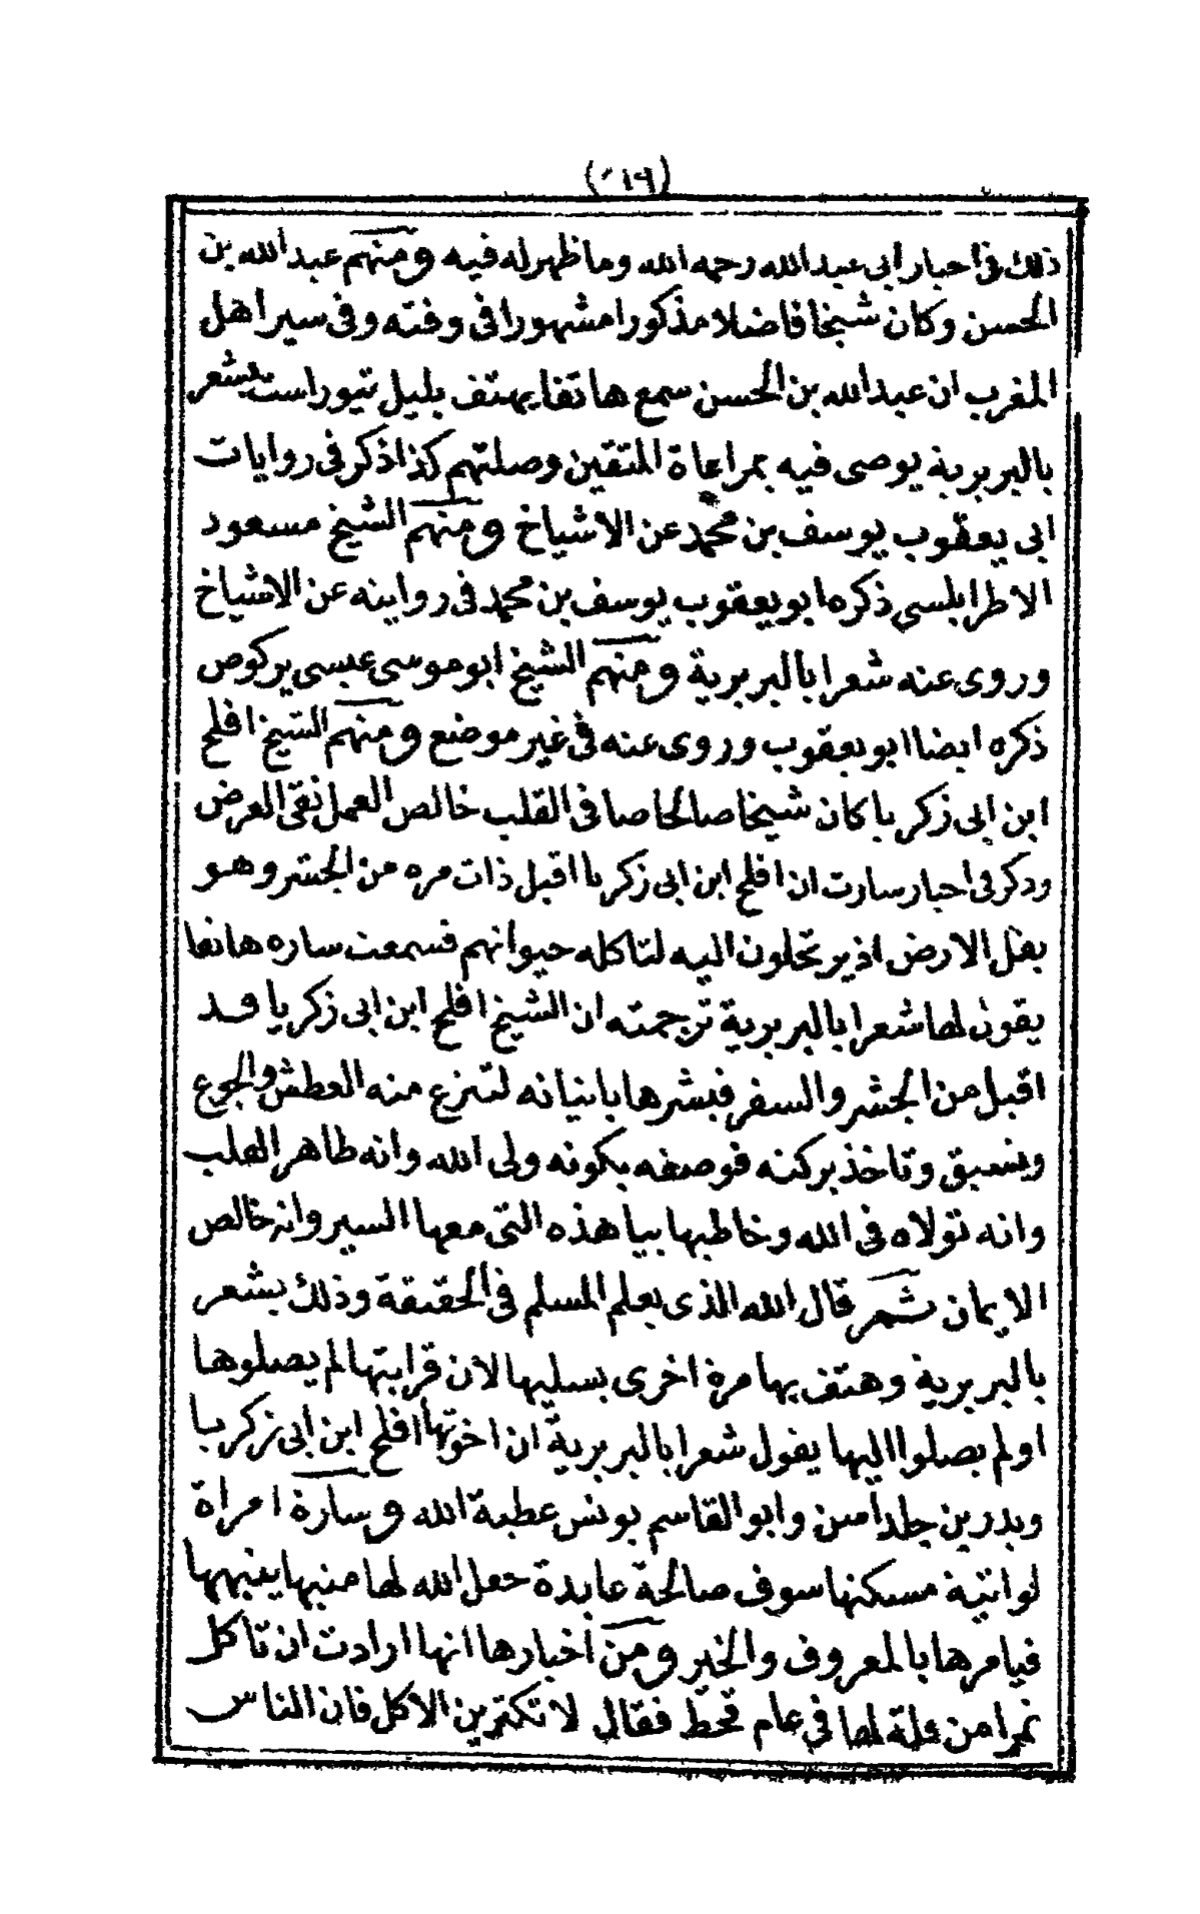 ذلك فى اخبار ابى عبد الله رحمه الله وما ظهر له فيه ومنهم عبد الله بن
الحسن وكان شيخا فاضلا مذكورا مشهورا فى وقته وفى سير اهل
المغرب ان عبد الله بن الحسن سمع هاتفا يهتف بليل تيوراست بشعر
بالبربرية يوصى فيه بمراعاة المتقين وصلتهم كذا ذكر فى روايات
ابى يعقوب يوسف بن محمد عن الاشياخ ومنهم الشيخ مسعود
الاطرابلسى ذكره ابو يعقوب يوسف بن محمد فى روايته عن الاشياخ
وروى عنه شعرا بالبربرية ومنهم الشيخ ابو موسى عيسى يركوص
ذكره ايضا ابو يعقوب وروى عنه فى غير موضع ومنهم الشيخ افلح
ابن ابى زكريا كان شيخا صالحا صافى القلب خالص العمل نقى العرض
وذكر فى اخبار سارت ان افلح ابن ابى زكريا اقبل ذات مره من الجشر وهو
بفل الارض اذ يرتحلون اليه لتاكله حيوانهم فسمعت ساره هاتفا
يقول لها شعرا بالبربرية ترجمته ان الشيخ افلح ابن ابى زكريا قد
اقبل من الجشر والسفر فبشرها باتيانه لتنزع منه العطش والجوع
وتسبق وتاخذ بركته فوصفه بكونه ولى الله وانه طاهر القلب
وانه تولاه فى الله وخاطبها بيا هذه التى معها السير وانه خالص
الايمان ثم قال الله الذى يعلم المسلم فى الحقيقة وذلك بشعر
بالبربرية وهتف بها مرة اخرى يسليها لان قرابتها لم يصلوها
او لم يصلوا اليها يقول شعرا بالبربرية ان اخوتها افلح ابن ابى زكريا
وبدر بن جلداسن وابو القاسم يونس عطية الله وسارة امراة
لواتية مسكنها سوف صالحة عابدة جعل الله لها منبها ينبهها
فيامرها بالمعروف والخير ومن اخبارها انها ارادت ان تاكل
تمرا من غلة لها فى عام قحط فقال لا تكثرين الاكل فان الناس